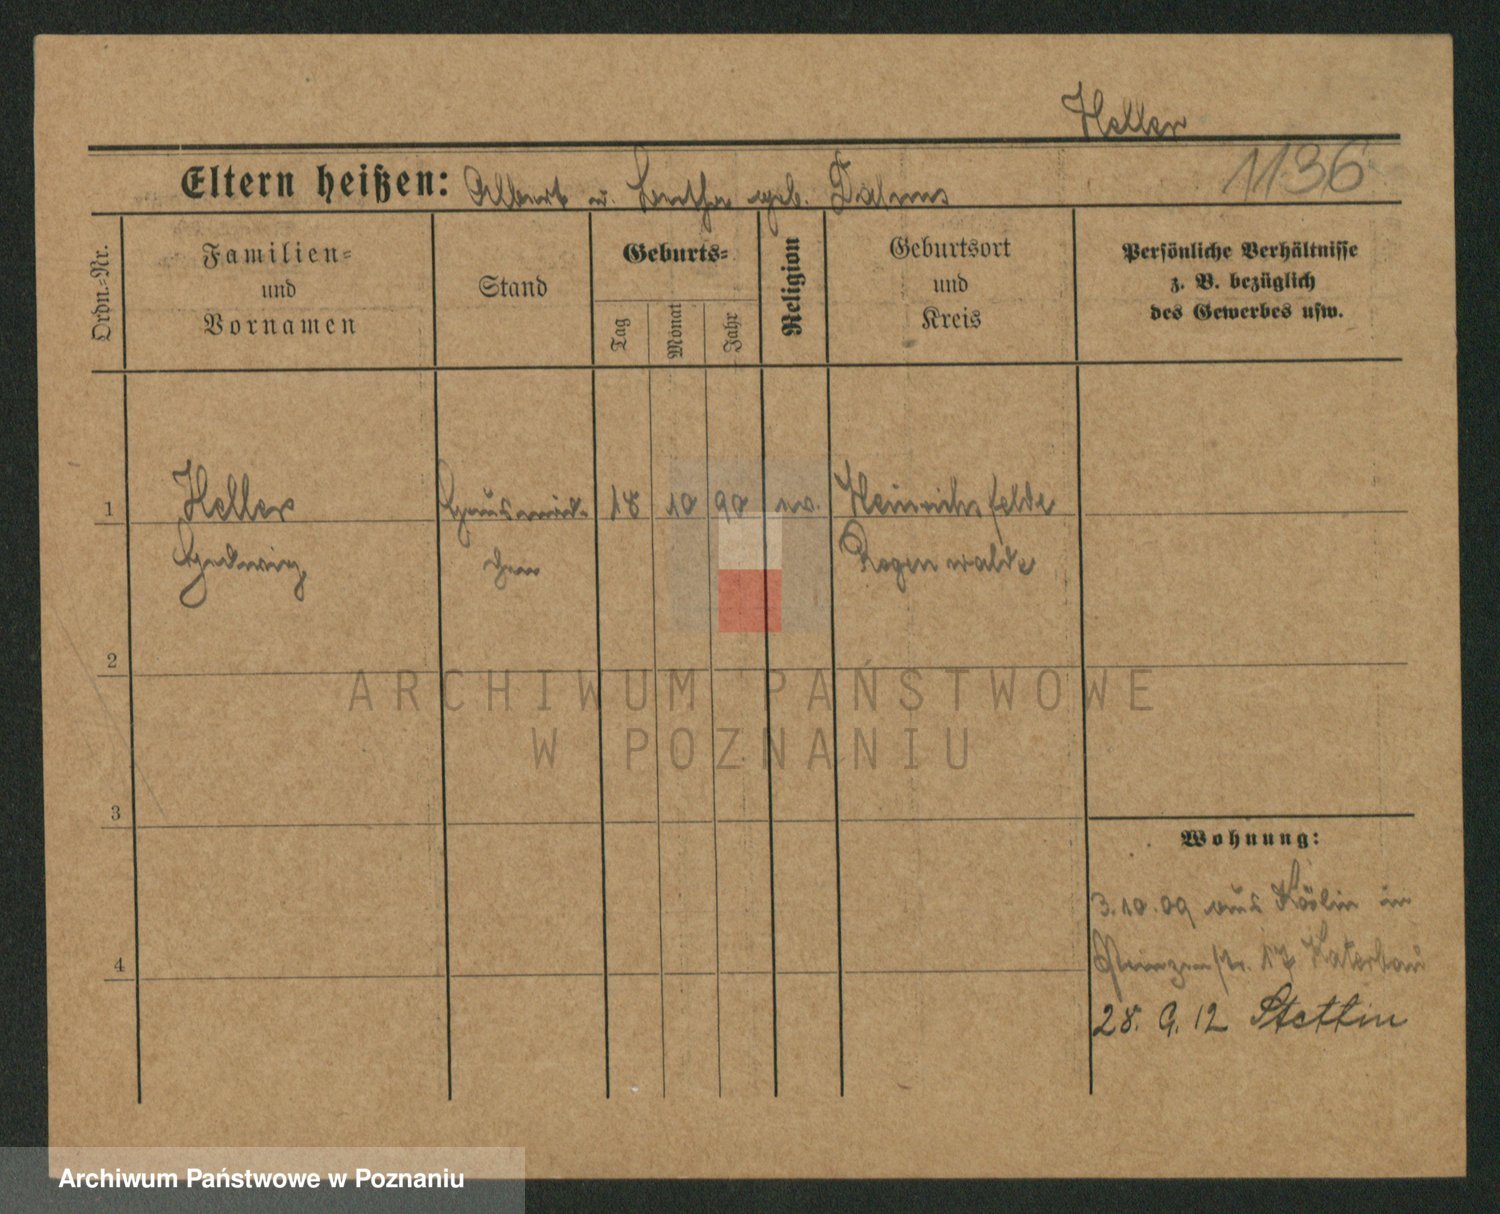 Heller
1136
Eltern heißen: Albert u. Bertha geb. Dalms
Ordn.-Nr.
Familien-
und
Vornamen
Stand
Geburts-
Tag
Monat
Jahr
Religion
Geburtsort
und
Kreis
Persönliche Verhältnisse
z. B. bezüglich
des Gewerbes usw.
1
Heller
Hedwig
Hausmäd-
chen
18 10 90 ev.
Heinrichsfelde
Regenwalde
2
3
4
Wohnung:
3.10.09 aus Köslin in
17
28. 9. 12 Stettin
ARCHIWUM PAŃSTWOWE
W POZNANIU
Archiwum Państwowe w Poznaniu